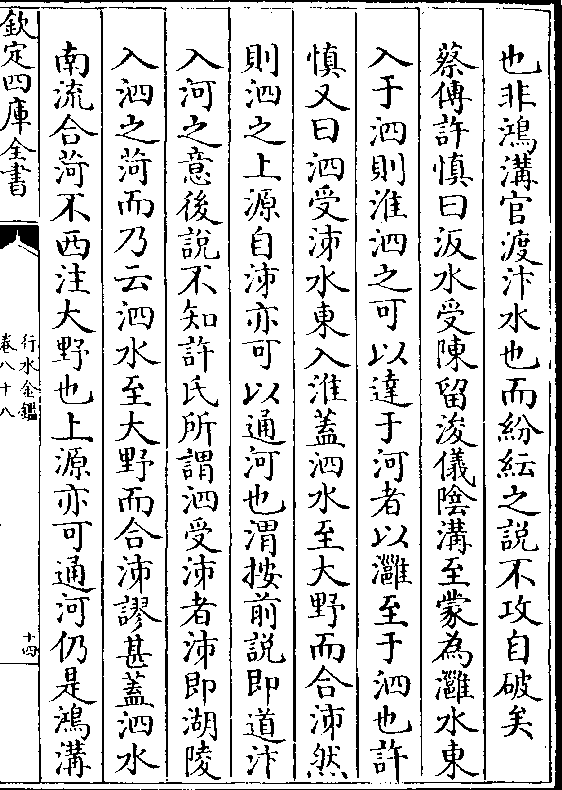 也非鴻溝官渡汴水也而紛紜之說不攻自破矣
蔡傳許慎曰汳水受陳留浚儀陰溝至蒙為灉水東
入于泗則淮泗之可以達于河者以灉至于泗也許
慎又曰泗受沛水東入淮蓋泗水至大野而合沛然
則泗之上源自沛亦可以通河也渭按前說即道汴
入河之意後說不知許氏所謂泗受沛者沛即湖陵
入泗之菏而乃云泗水至大野而合沛謬甚蓋泗水
南流合菏不西注大野也上源亦可通河仍是鴻溝
欽定四庫全書
行水金鑑
卷八十八
十四